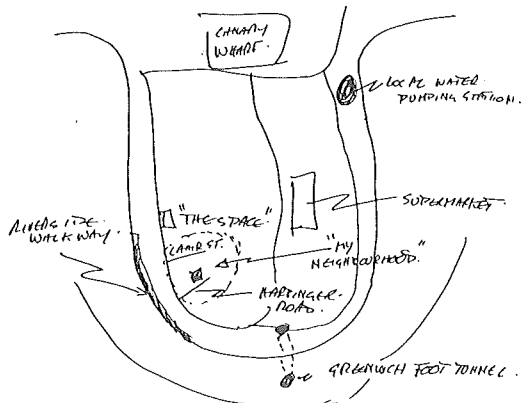 CANARY
WHARF.
LOCAL WATER
PUMPING STATION.
"THE SPACE"
SUPERMARKET.
RIVERSIDE
WALKWAY.
"MY
NEIGHBOURHOOD."
HARBINGER
ROAD
GREENWICH FOOT TUNNEL.